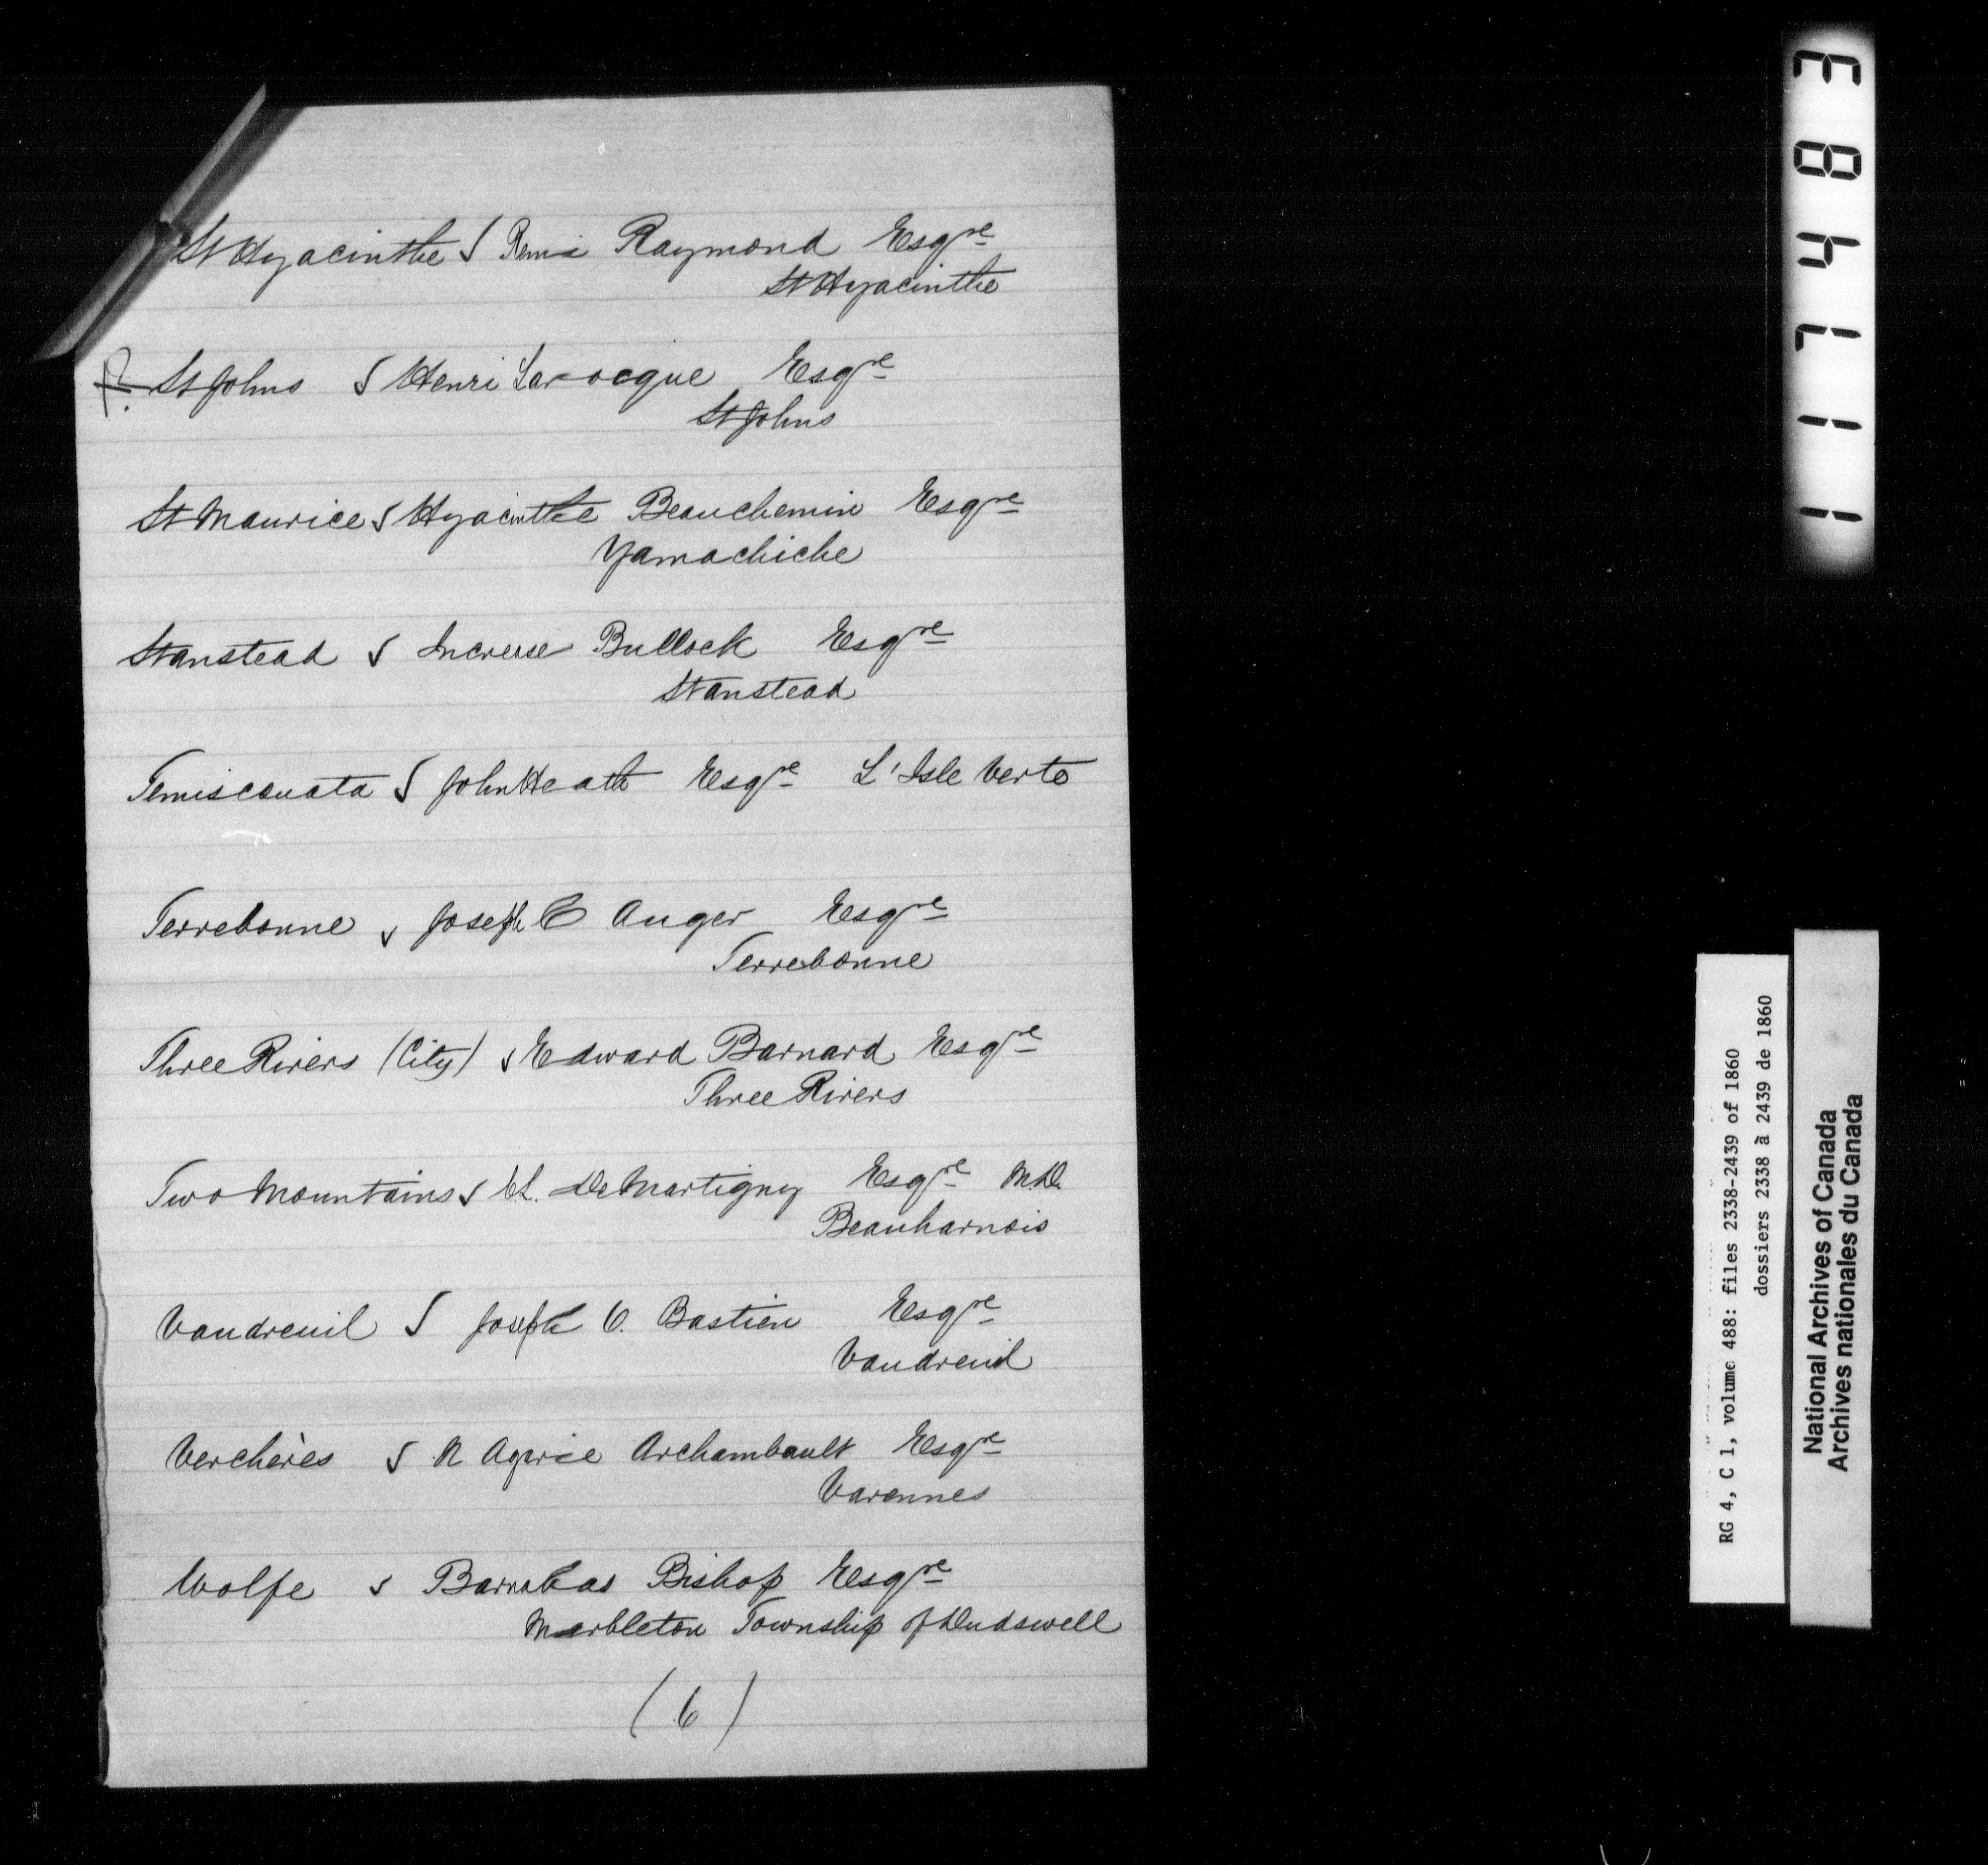 St Hyacinthe Remi Raymond Esqre
St Hyacinthe
St Johns Henri Larocque Esqre
St Johns
St Maurice Hyacinthe Beauchemin Esqre
Yamachiche
Stanstead Increase Bullock Esqre
Stanstead
Temiscouata John Heath Esqre L'Isle Verte
Terrebonne Joseph C Auger Esqre
Terrebonne
Three Rivers (City) Edward Barnard Esqre
Three Rivers
Two Mountains C.L. De Martigny Esqre M.D.
Beauharnois
Vaudreuil Joseph O. Bastien Esqre
Vaudreuil
Verchères Archambault Esqre
Varennes
Wolfe Barnabas Bishop Esqre
Marbleton Township of Dudswell
(6)
117483
RG 4, C 1, volume 488: files 2338-2439 of 1860
dossiers 2338 à 2439 de 1860
National Archives of Canada
Archives nationales du Canada